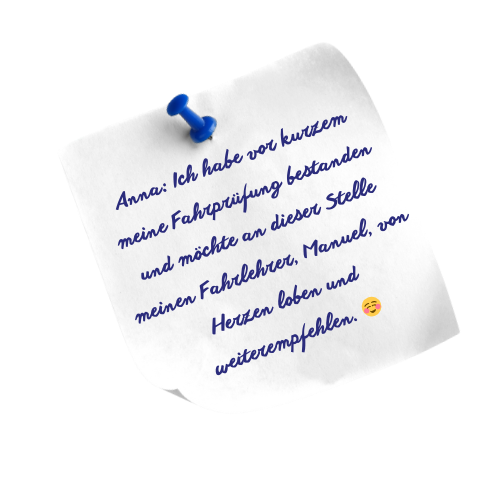 Anna: Ich habe vor kurzem
meine Fahrprüfung bestanden
und möchte an dieser Stelle
meinen Fahrlehrer, Manuel, von
Herzen loben und
weiterempfehlen. 😊